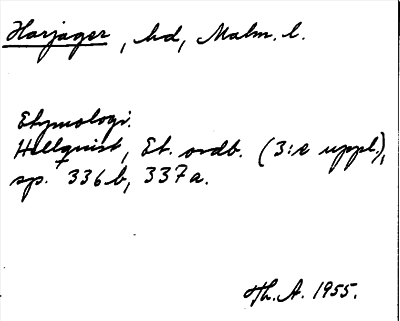 Harjager, hd, Malm. l.
Etymologi.
Hellquist, Et. ordb. (3:e uppl.),
sp. 336b, 337a.
Th. A. 1955.